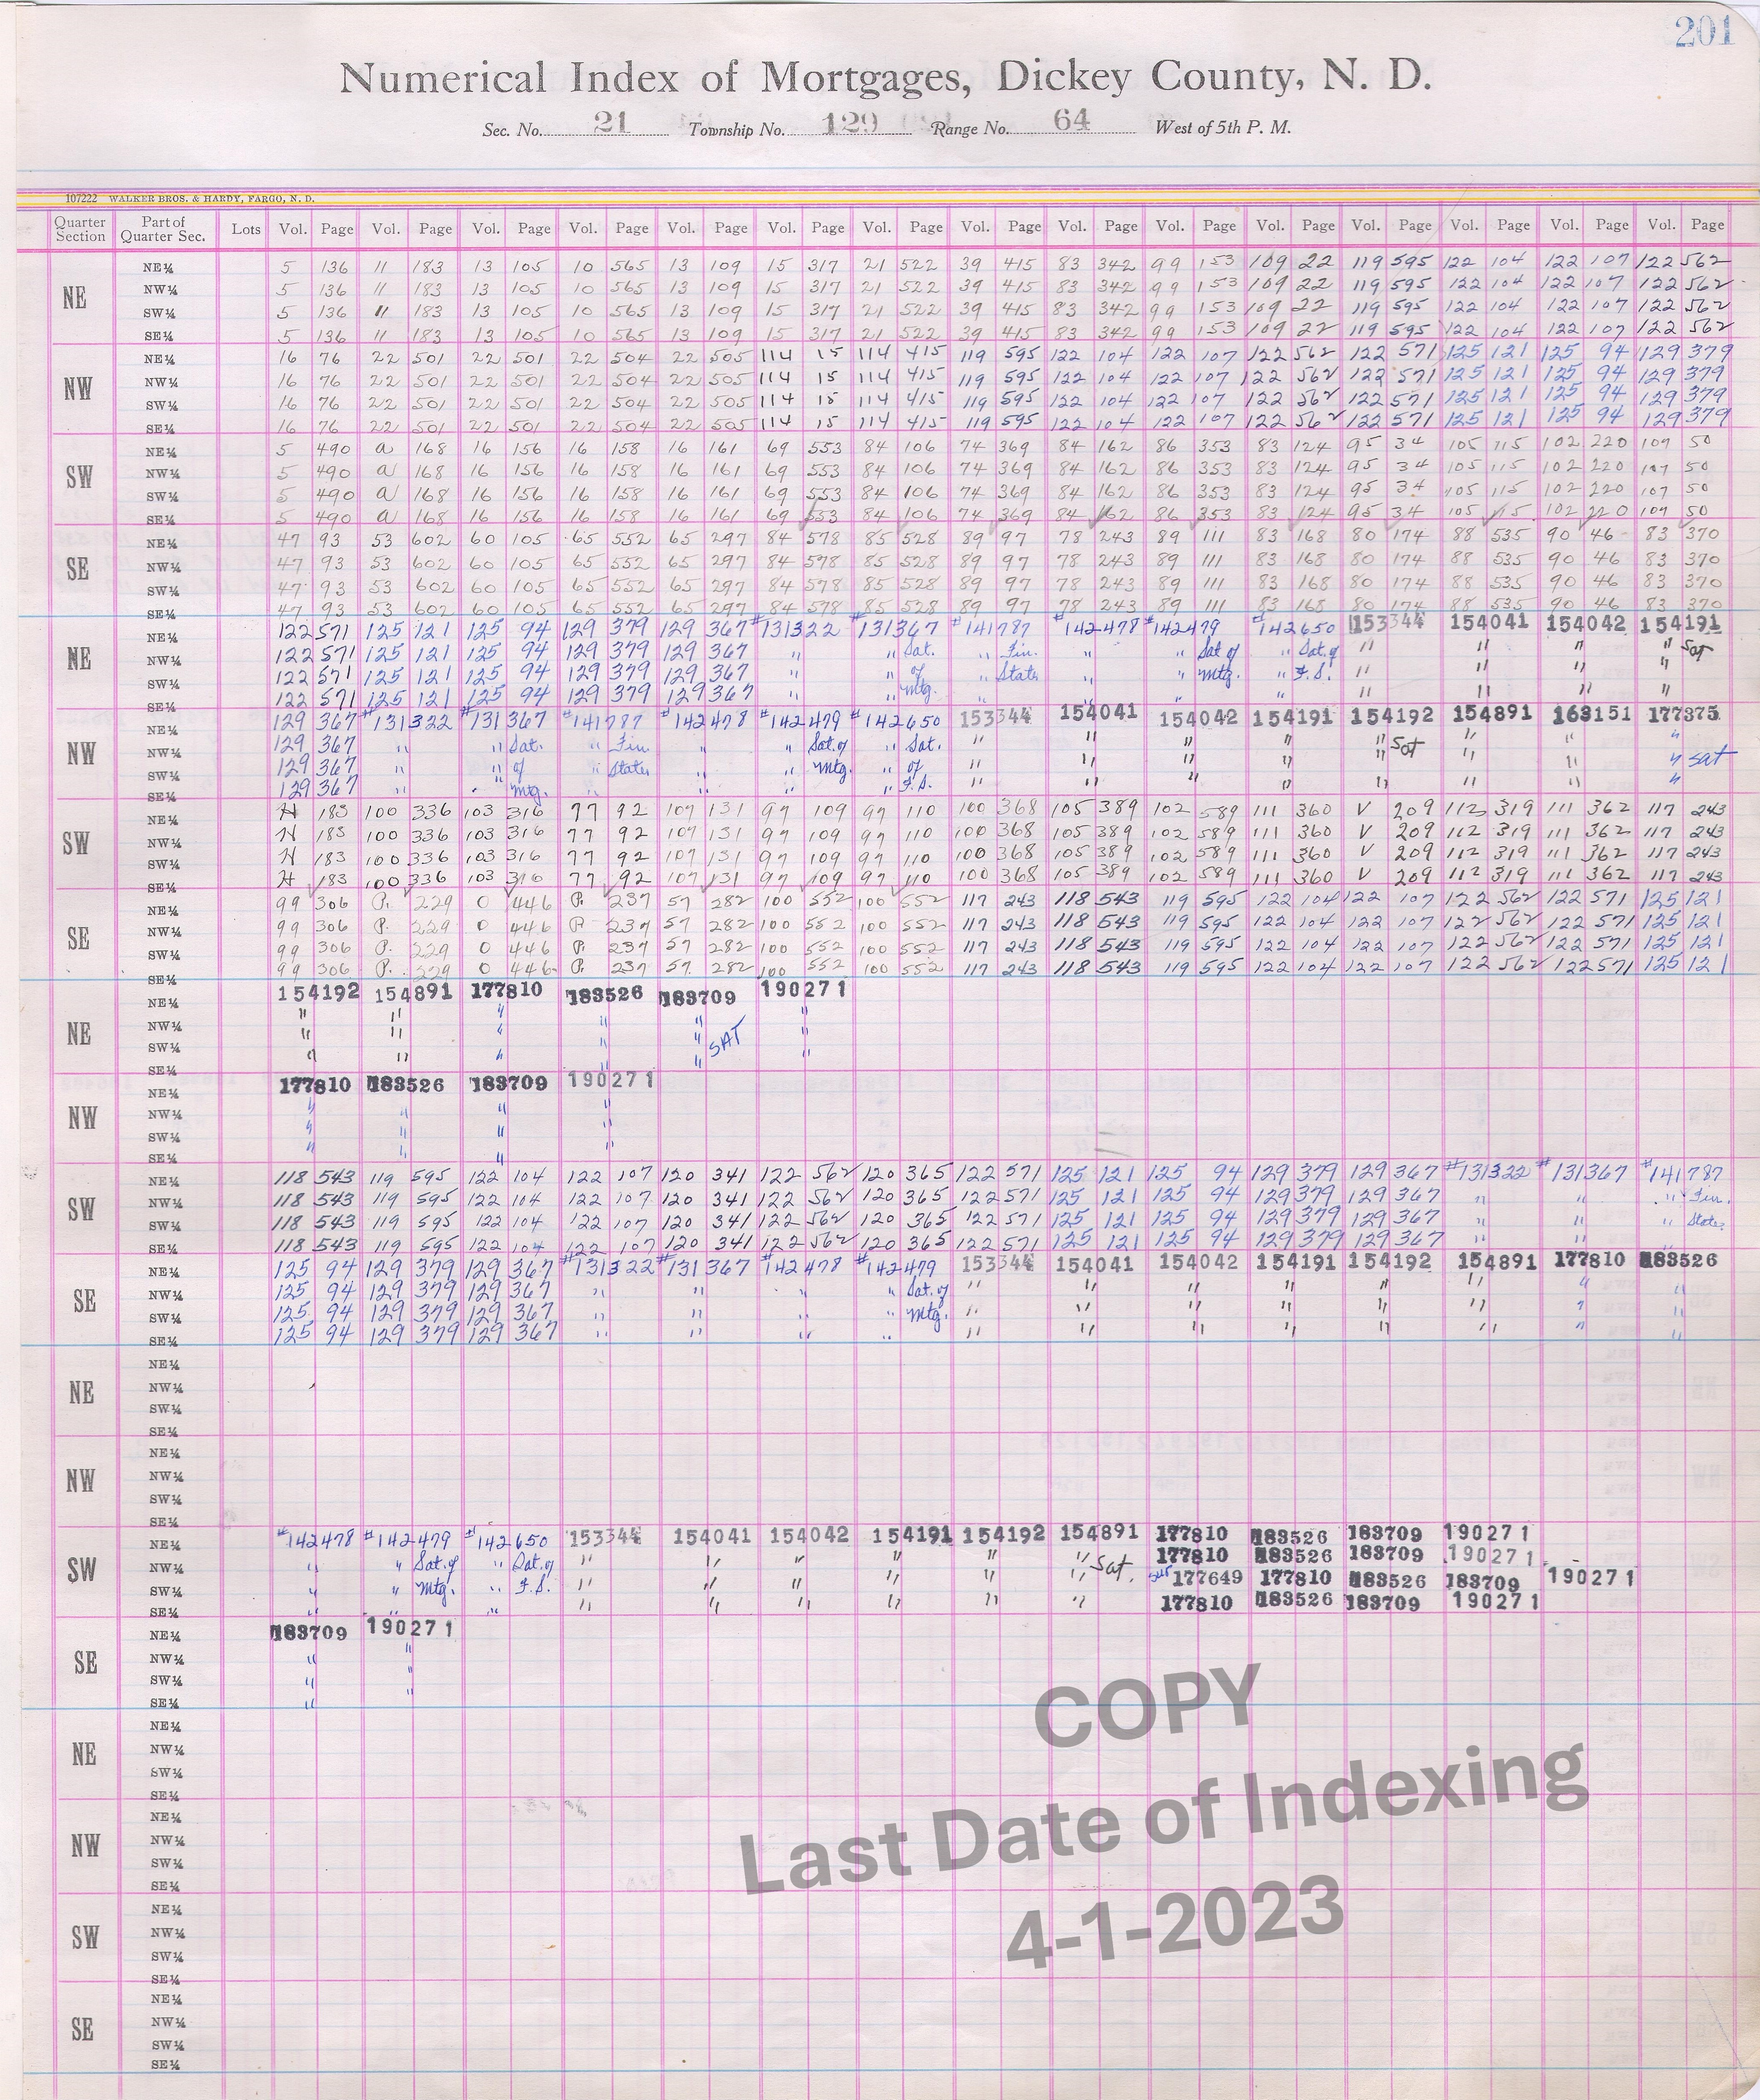 201
Numerical Index of Mortgages, Dickey County, N. D.
Sec. No. 21 Township No. 129 Range No. 64 West of 5th P. M.
107222 WALKER BROS. & HARDY, FARGO, N. D.
Quarter Section Part of Quarter Sec. Lots Vol. Page Vol. Page Vol. Page Vol. Page Vol. Page Vol. Page Vol. Page Vol. Page Vol. Page Vol. Page Vol. Page Vol. Page Vol. Page Vol. Page Vol. Page
NE
NE¼ 5 136 11 183 13 105 10 565 13 109 15 317 21 522 39 415 83 342 99 153 109 22 119 595 122 104 122 107 122 562
NW¼ 5 136 11 183 13 105 10 565 13 109 15 317 21 522 39 415 83 342 99 153 109 22 119 595 122 104 122 107 122 562
SW¼ 5 136 11 183 13 105 10 565 13 109 15 317 21 522 39 415 83 342 99 153 109 22 119 595 122 104 122 107 122 562
SE¼ 5 136 11 183 13 105 10 565 13 109 15 317 21 522 39 415 83 342 99 153 109 22 119 595 122 104 122 107 122 562
NW
NE¼ 16 76 22 501 22 501 22 504 22 505 114 15 114 415 119 595 122 104 122 107 122 562 122 571 125 121 125 94 129 379
NW¼ 16 76 22 501 22 501 22 504 22 505 114 15 114 415 119 595 122 104 122 107 122 562 122 571 125 121 125 94 129 379
SW¼ 16 76 22 501 22 501 22 504 22 505 114 15 114 415 119 595 122 104 122 107 122 562 122 571 125 121 125 94 129 379
SE¼ 16 76 22 501 22 501 22 504 22 505 114 15 114 415 119 595 122 104 122 107 122 562 122 571 125 121 125 94 129 379
SW
NE¼ 5 490 a 168 16 156 16 158 16 161 69 553 84 106 74 369 84 162 86 353 83 124 95 34 105 115 102 220 107 50
NW¼ 5 490 a 168 16 156 16 158 16 161 69 553 84 106 74 369 84 162 86 353 83 124 95 34 105 115 102 220 107 50
SW¼ 5 490 a 168 16 156 16 158 16 161 69 553 84 106 74 369 84 162 86 353 83 124 95 34 105 115 102 220 107 50
SE¼ 5 490 a 168 16 156 16 158 16 161 69 553 84 106 74 369 84 162 86 353 83 124 95 34 105 115 102 220 107 50
SE
NE¼ 47 93 53 602 60 105 65 552 65 297 84 578 85 528 89 97 78 243 89 111 83 168 80 174 88 535 90 46 83 370
NW¼ 47 93 53 602 60 105 65 552 65 297 84 578 85 528 89 97 78 243 89 111 83 168 80 174 88 535 90 46 83 370
SW¼ 47 93 53 602 60 105 65 552 65 297 84 578 85 528 89 97 78 243 89 111 83 168 80 174 88 535 90 46 83 370
SE¼ 47 93 53 602 60 105 65 552 65 297 84 578 85 528 89 97 78 243 89 111 83 168 80 174 88 535 90 46 83 370
NE
NE¼ 122 571 125 121 125 94 129 379 129 367 #131322 #131367 #141787 #142478 #142479 #142650 153344 154041 154042 154191
NW¼ 122 571 125 121 125 94 129 379 129 367 " " Sat. " Fin. " " Sat of " Sat. of " " " " Sat
SW¼ 122 571 125 121 125 94 129 379 129 367 " " of " State " " Mtg. " F.S. " " " "
SE¼ 122 571 125 121 125 94 129 379 129 367 " " Mtg. " " " " " " " "
NW
NE¼ 129 367 #131322 #131367 #141787 #142478 #142479 #142650 153344 154041 154042 154191 154192 154891 163151 177375
NW¼ 129 367 " " Sat. " Fin " " Sat. of " Sat. " " " " " Sat " " "
SW¼ 129 367 " " of " State " " Mtg. " of " " " " " " " " Sat
SE¼ 129 367 " " Mtg. " " " " F.S. " " " " " " " "
SW
NE¼ H 183 100 336 103 316 77 92 107 131 97 109 97 110 100 368 105 389 102 589 111 360 V 209 112 319 111 362 117 243
NW¼ H 183 100 336 103 316 77 92 107 131 97 109 97 110 100 368 105 389 102 589 111 360 V 209 112 319 111 362 117 243
SW¼ H 183 100 336 103 316 77 92 107 131 97 109 97 110 100 368 105 389 102 589 111 360 V 209 112 319 111 362 117 243
SE¼ H 183 100 336 103 316 77 92 107 131 97 109 97 110 100 368 105 389 102 589 111 360 V 209 112 319 111 362 117 243
SE
NE¼ 99 306 P. 229 O 446 P. 237 57 282 100 552 100 552 117 243 118 543 119 595 122 104 122 107 122 562 122 571 125 121
NW¼ 99 306 P. 229 O 446 P 237 57 282 100 552 100 552 117 243 118 543 119 595 122 104 122 107 122 562 122 571 125 121
SW¼ 99 306 P. 229 O 446 P. 237 57 282 100 552 100 552 117 243 118 543 119 595 122 104 122 107 122 562 122 571 125 121
SE¼ 99 306 P. 229 O 446 P. 237 57 282 100 552 100 552 117 243 118 543 119 595 122 104 122 107 122 562 122 571 125 121
NE
NE¼ 154192 154891 177810 183526 183709 190271
NW¼ " " " " " "
SW¼ " " " " " SAT "
SE¼ " " " " " "
NW
NE¼ 177810 183526 183709 190271
NW¼ " " " "
SW¼ " " " "
SE¼ " " " "
SW
NE¼ 118 543 119 595 122 104 122 107 120 341 122 562 120 365 122 571 125 121 125 94 129 379 129 367 #131322 #131367 #141787
NW¼ 118 543 119 595 122 104 122 107 120 341 122 562 120 365 122 571 125 121 125 94 129 379 129 367 " " " Fin.
SW¼ 118 543 119 595 122 104 122 107 120 341 122 562 120 365 122 571 125 121 125 94 129 379 129 367 " " " State
SE¼ 118 543 119 595 122 104 122 107 120 341 122 562 120 365 122 571 125 121 125 94 129 379 129 367 " " "
SE
NE¼ 125 94 129 379 129 367 #131322 #131367 #142478 #142479 153344 154041 154042 154191 154192 154891 177810 183526
NW¼ 125 94 129 379 129 367 " " " " Sat. of " " " " " " " "
SW¼ 125 94 129 379 129 367 " " " " Mtg. " " " " " " " "
SE¼ 125 94 129 379 129 367 " " " " " " " " " " " "
NE
NE¼
NW¼
SW¼
SE¼
NW
NE¼
NW¼
SW¼
SE¼
SW
NE¼ #142478 #142479 #142650 153344 154041 154042 154191 154192 154891 177810 183526 183709 190271
NW¼ " " Sat. of " Sat. of " " " " " " Sat. 177810 183526 183709 190271
SW¼ " " Mtg. " F.S. " " " " " " 177649 177810 183526 183709 190271
SE¼ " " " " " " " " " 177810 183526 183709 190271
SE
NE¼ 183709 190271
NW¼ " "
SW¼ " "
SE¼ "
NE
NE¼
NW¼
SW¼
SE¼
NW
NE¼
NW¼
SW¼
SE¼
SW
NE¼
NW¼
SW¼
SE¼
SE
NE¼
NW¼
SW¼
SE¼
COPY
Last Date of Indexing
4-1-2023